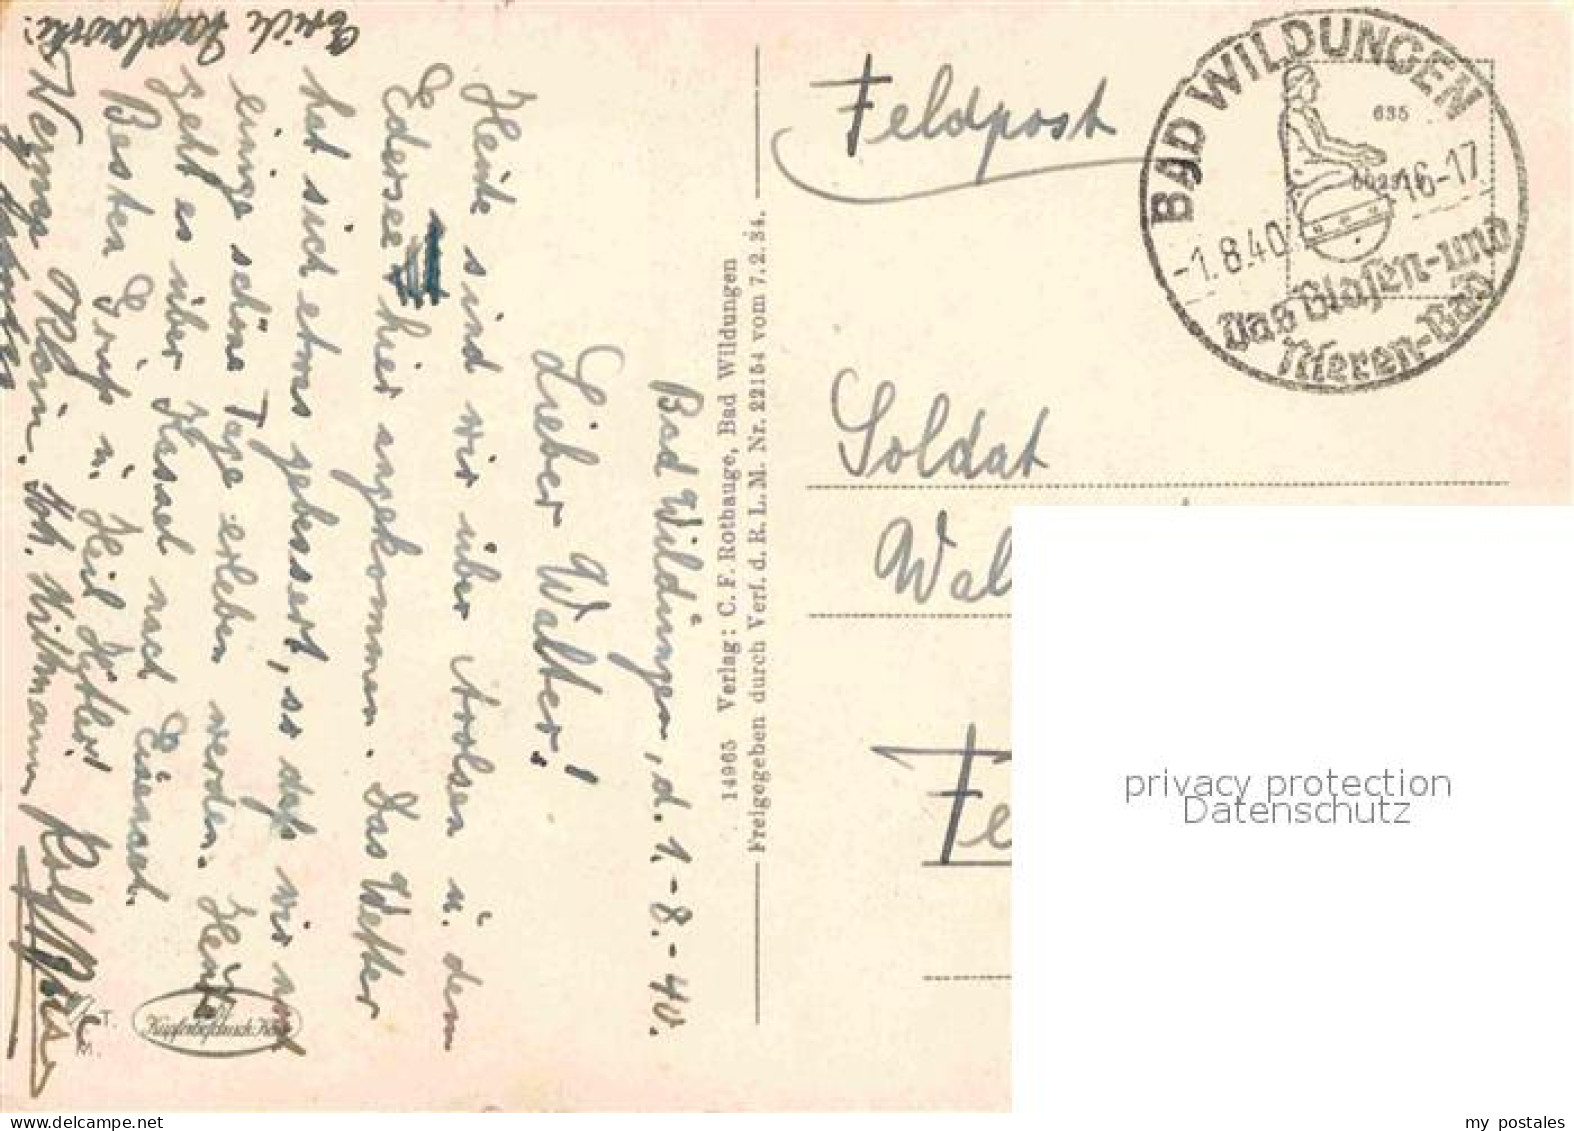 Bad Wildungen, d. 1.-8.-40.
Lieber Walter!
Heute sind wir über Arolsen u. dem
Edersee hier angekommen. Das Wetter
hat sich etwas gebessert, so daß wir noch
einige schöne Tage erleben werden. Heute
geht es über Kassel nach Eisenach.
Besten Gruß u. Heil Hitler!
Werner Klein. Joh. Wittmann
Erich
14965 Verlag: C. F. Rothauge, Bad Wildungen
Freigegeben durch Verf. d. R. L. M. Nr. 22154 vom 7. 2. 34.
Feldpost
BAD WILDUNGEN
635
-1.8.40
16-17
Das Blasen- und
Nieren-Bad
Soldat
Wal
Fe
privacy protection
Datenschutz
my postales